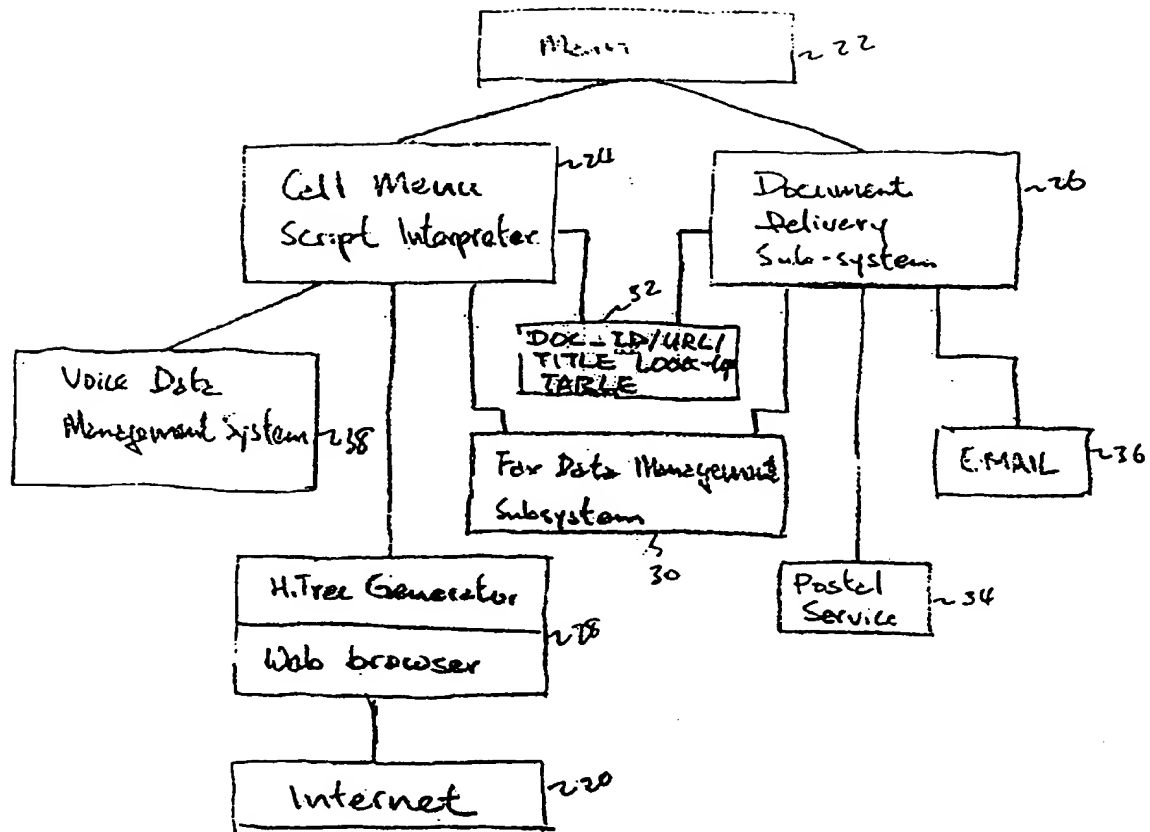 22
Call Menu
Script Interpreter
24
Document
Delivery
Sub-system
26
32
DOC-ID/URL/
TITLE LOOK-up
TABLE
Voice Data
Management System
38
Fax Data Management
Subsystem
30
E.MAIL
36
H.Tree Generator
Web browser
28
Postal
Service
34
Internet
20